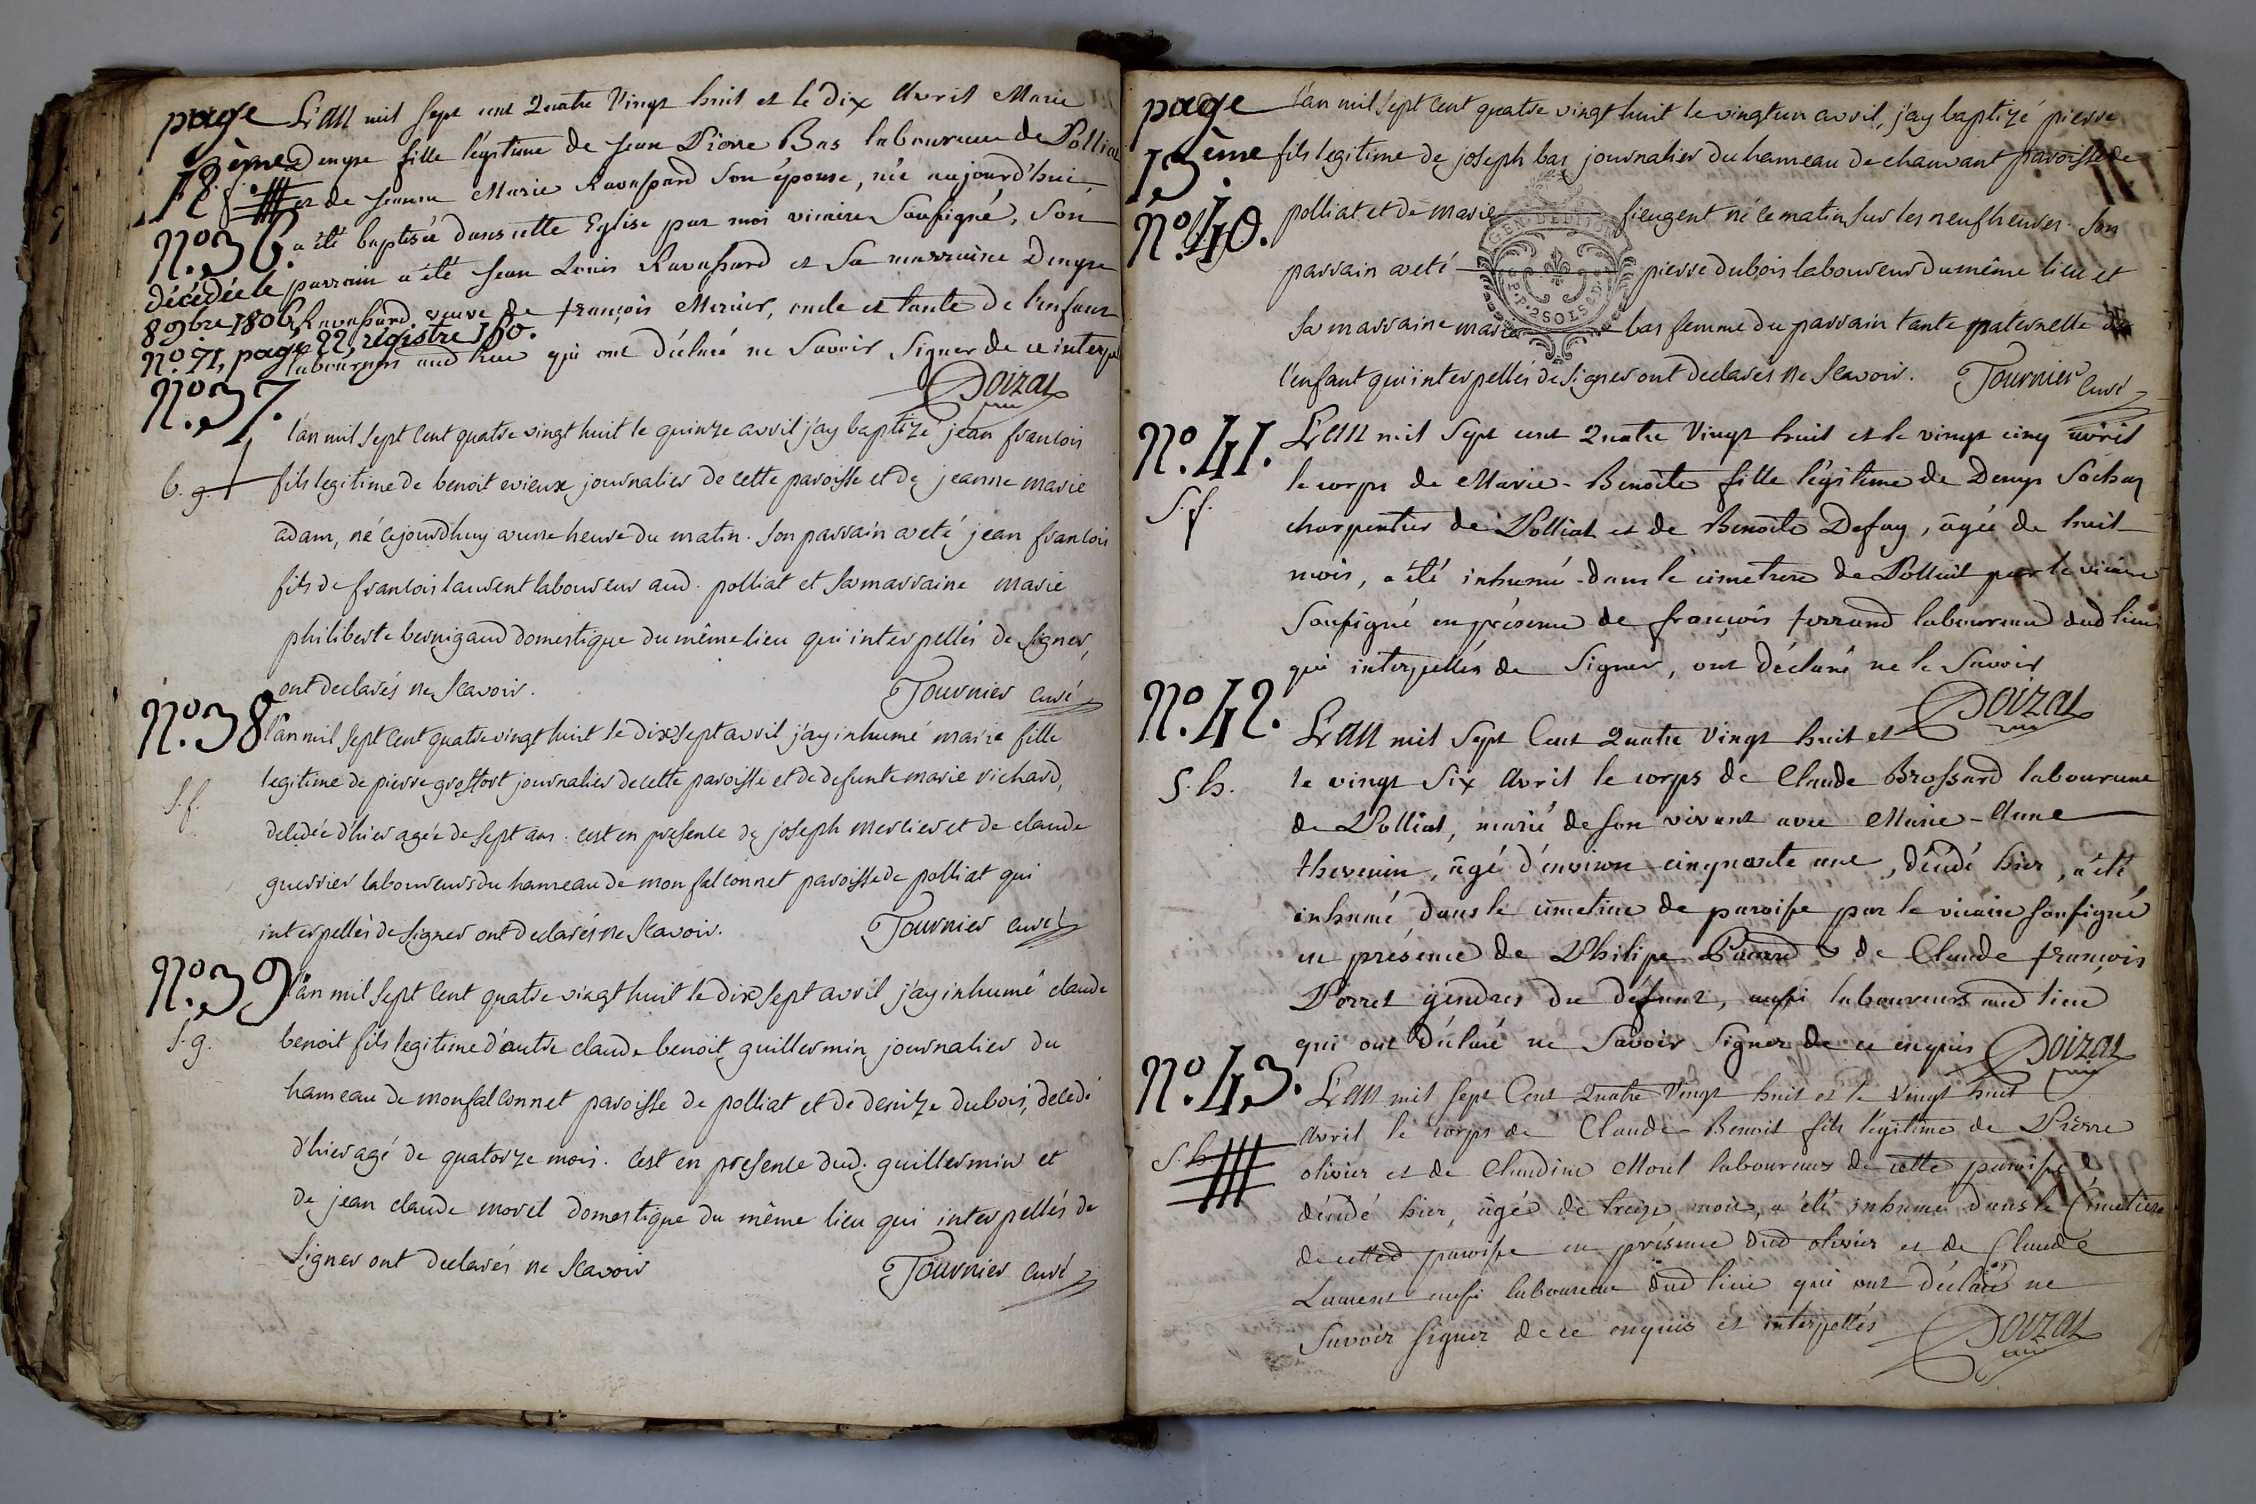 page
12ème
L'an mil sept cent Quatre Vingt huit et le dix Avril Marie
Denyse fille légitime de Jean Pierre Bas laboureur de Polliat
et de Jeanne Marie Ravassard son épouse, née aujourd'hui,
N.º 36.
a été baptisée dans cette Eglise par moi vicaire soussigné, son
décédée le
parrain a été Jean Louis Ravassard et sa marraine Denyse
8 9bre 1806,
Ravassard veuve de françois Mercier, oncle et tante de l'enfant
n.º 71, page 22, régistre 160.
laboureurs aud lieu qui ont déclaré ne savoir signer de ce interp
Doizat
N.º 37.
l'an mil sept cent quatre vingt huit le quinze avril j'ay baptizé jean francois
b. g.
fils legitime de benoit evieux journalier de cette paroisse et de jeanne marie
adam, né cejourdhuy a une heure du matin. son parrain a eté jean francois
fils de francois laurent laboureur aud. polliat et sa marraine marie
philiberte bernigaud domestique du même lieu qui interpellés de signer,
ont declarés ne scavoir.
Tournier curé
N.º 38
l'an mil sept cent quatre vingt huit le dix sept avril j'ay inhumé marie fille
s. f.
legitime de pierre grosfort journalier de cette paroisse et de defunte marie richard,
decedée d'hier agée de sept ans. c'est en presence de joseph mercier et de claude
guerrier laboureurs du hameau de monfalconnet paroisse de polliat qui
interpellés de signer ont declarés ne scavoir.
Tournier curé
N.º 39
l'an mil sept cent quatre vingt huit le dix sept avril j'ay inhumé claude
s. g.
benoit fils legitime d'autre claude benoit guillermin journalier du
hameau de monfalconnet paroisse de polliat et de denize dubois, decedé
d'hier agé de quatorze mois. c'est en presence dud. guillermin et
de jean claude morel domestique du même lieu qui interpellés de
signer ont declarés ne scavoir
Tournier curé
page
13ème
l'an mil sept cent quatre vingt huit le vingt un avril, j'ay baptizé pierre
fils legitime de joseph bas journalier du hameau de chanvant paroisse de
N.º 40.
polliat et de marie fieugent né ce matin sur les neuf heures. son
parrain a eté pierre dubois laboureur du même lieu et
GEN. DE DIJON
P.P. 2 SOLS 8 D.
sa marraine marie bas femme du parrain tante paternelle de
l'enfant qui interpellés de signer ont declarés ne scavoir.
Tournier curé
N.º 41.
L'an mil sept cent Quatre Vingt huit et le vingt cinq avril
le corps de Marie-Benoîte fille légitime de Denys Sochay
S. f.
charpentier de Polliat et de Benoîte Defay, âgée de huit
mois, a été inhumé dans le cimetiere de Polliat par le vicaire
soussigné en présence de françois ferrand laboureur dud lieu
qui interpellés de signer, ont déclaré ne le savoir
Doizat
N.º 42.
L'an mil sept Cent Quatre Vingt huit et
S. h.
le vingt six Avril le corps de Claude Brossard laboureur
de Polliat, marié de son vivant avec Marie-Anne
thevenin, âgé d'environ cinquante ans, décédé hier, a été
inhumé dans le cimetiere de paroisse par le vicaire soussigné
en présence de Philipe Pacard & de Claude françois
Perret gendres du défunt, aussi laboureurs aud lieu
qui ont déclaré ne savoir signer de ce enquis
Doizat
N.º 43.
L'an mil sept Cent Quatre Vingt huit et le Vingt huit
Avril le corps de Claude-Benoit fils légitime de Pierre
S. h.
olivier et de Claudine Morel laboureurs de cette paroisse
décédé hier, âgé de treize mois, a été inhumé dans le Cimetiere
de cetted paroisse en présence dud olivier et de Claude
Laurent aussi laboureur dud lieu qui ont déclarés ne
savoir signer de ce enquis et interpellés
Doizat